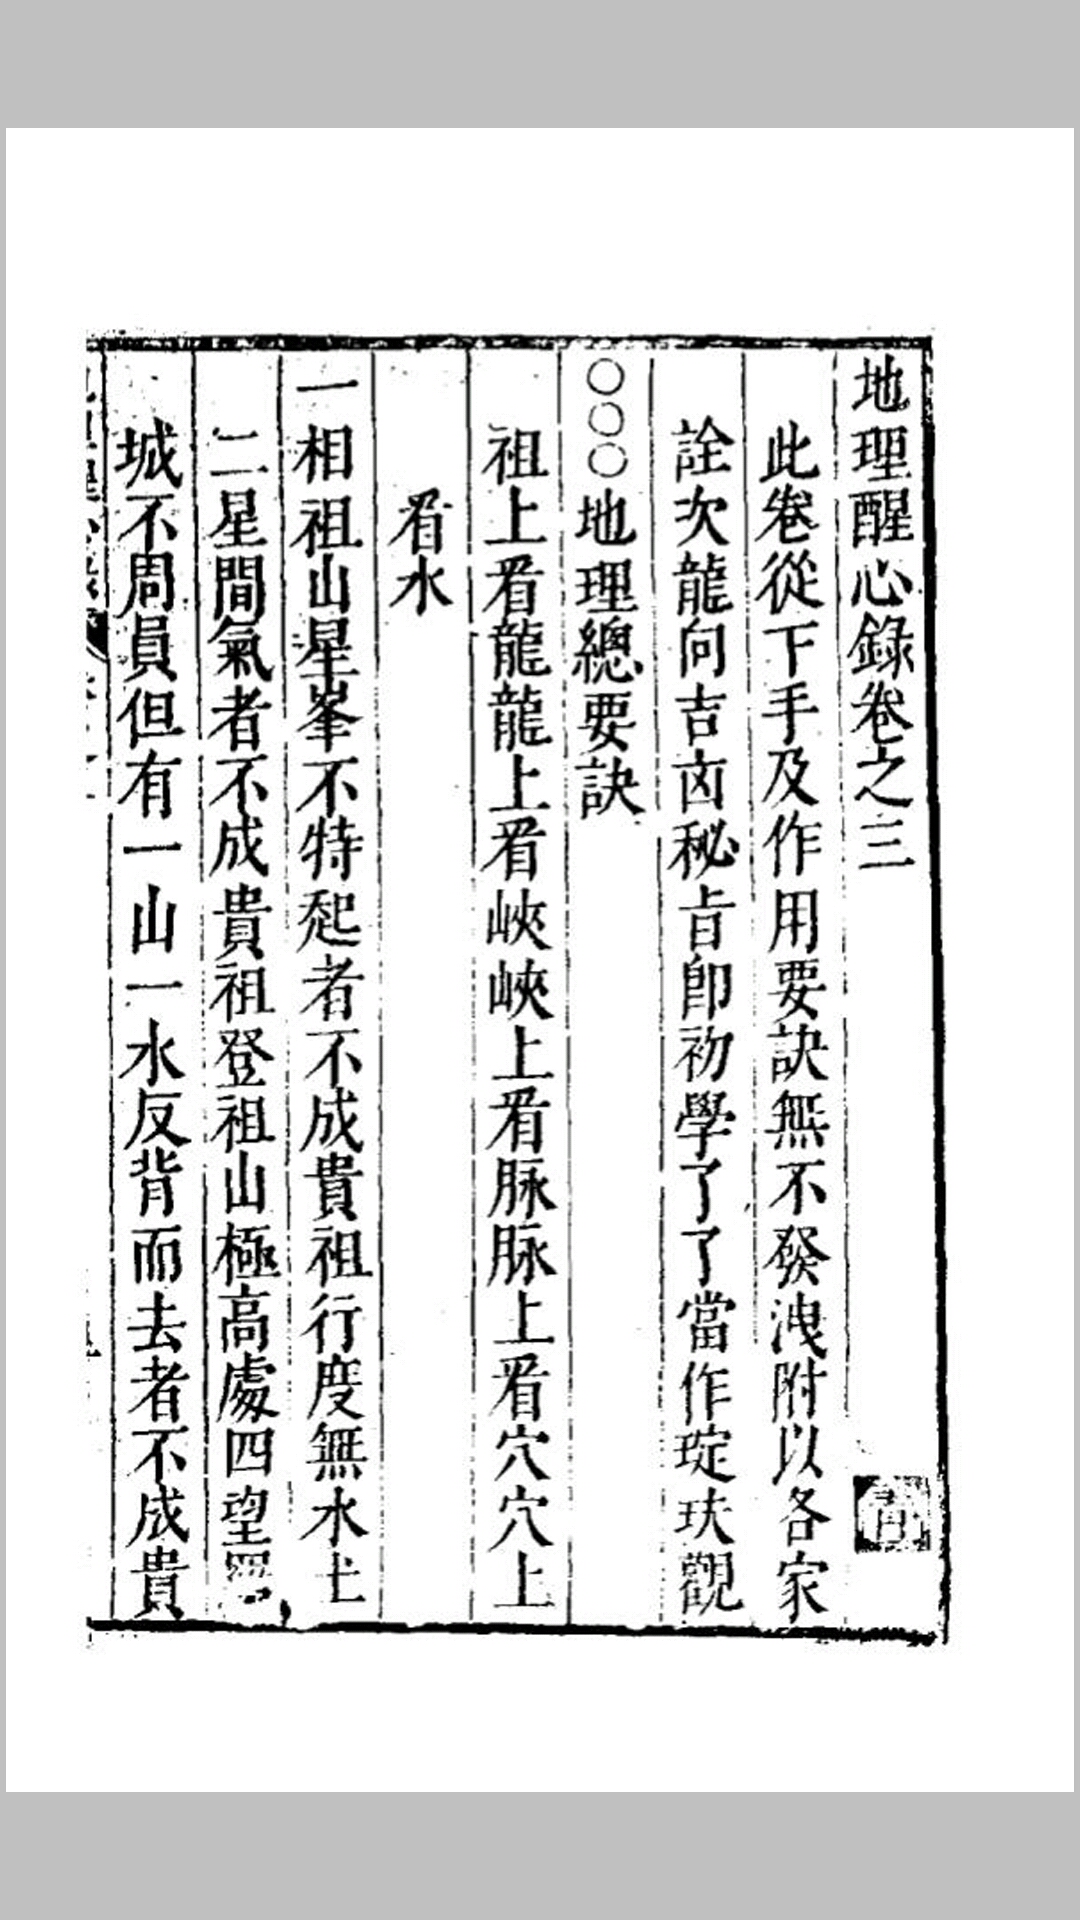 地理醒心錄卷之三
此卷從下手及作用要訣無不發洩附以各家
詮次龍向吉凶秘旨卽初學了了當作琔玞觀
○○○地理總要訣
祖上看龍龍上看峽峽上看脉脉上看穴穴上
看水
一相祖山星峯不特起者不成貴祖行度無水土
二星間氣者不成貴祖登祖山極高處四望羅
城不周員但有一山一水反背而去者不成貴